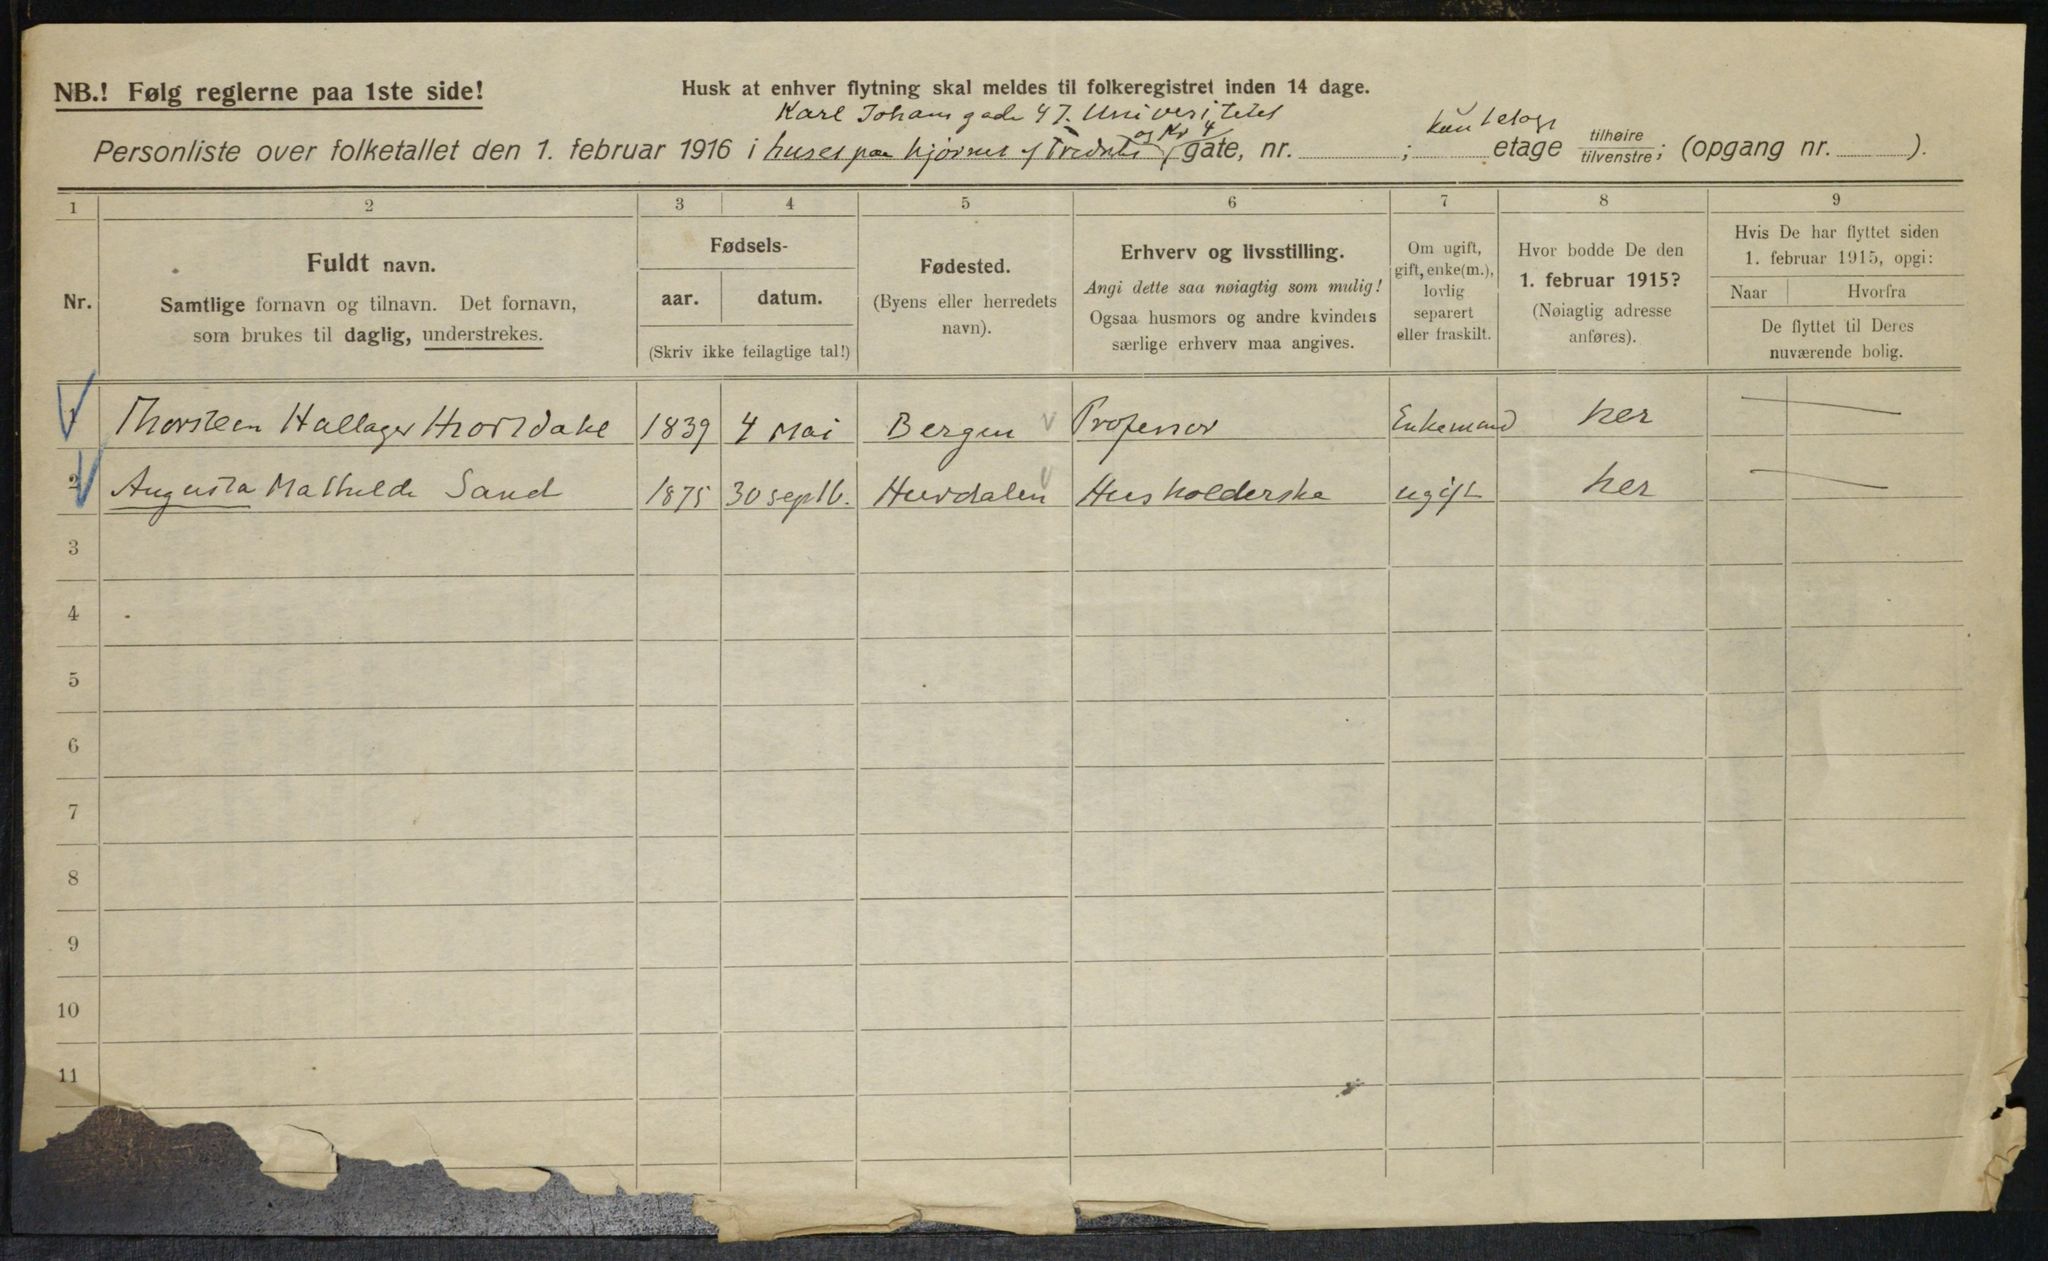 NB.! Følg reglerne paa 1ste side!
Husk at enhver flytning skal meldes til folkeregistret inden 14 dage.
Karl Johans gade 47. Universitetet
Personliste over folketallet den 1. februar 1916 i huset paa hjørnet af gate, nr. ; kun 1 etage etage tilhøire/tilvenstre; (opgang nr. ).
1 2 3 4 5 6 7 8 9
Nr.
Fuldt navn.
Samtlige fornavn og tilnavn. Det fornavn,
som brukes til daglig, understrekes.
Fødsels-
aar. datum.
(Skriv ikke feilagtige tal!)
Fødested.
(Byens eller herredets
navn).
Erhverv og livsstilling.
Angi dette saa nøiagtig som mulig!
Ogsaa husmors og andre kvinders
særlige erhverv maa angives.
Om ugift,
gift, enke(m.),
lovlig
separert
eller fraskilt.
Hvor bodde De den
1. februar 1915?
(Nøiagtig adresse
anføres).
Hvis De har flyttet siden
1. februar 1915, opgi:
Naar Hvorfra
De flyttet til Deres
nuværende bolig.
1 Thorsteen Hallager Hiortdahl 1839 4 Mai Bergen Professor Enkemand her
2 Augusta Mathilde Sand 1875 30 septb. Hurdalen Husholderske ugift her
3
4
5
6
7
8
9
10
11